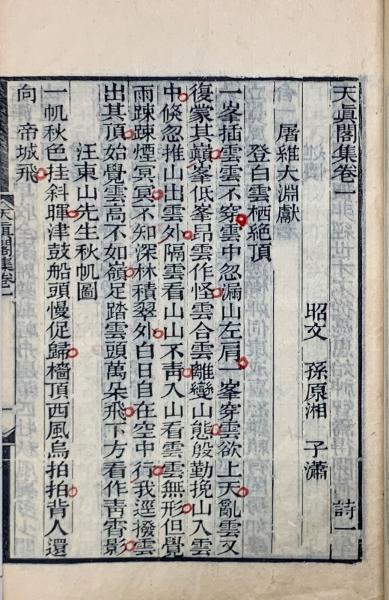 天眞閣集卷一
昭文 孫原湘 子瀟
詩一
屠維大淵獻
登白雲栖絶頂
一峯插雲雲不穿雲中忽漏山左肩一峯穿雲欲上天亂雲又
復蒙其巔峯低峯昂雲作怪雲合雲離變山態殷勤挽山入雲
中倏忽推山出雲外隔雲看山山不靑入山看雲雲無形但覺
雨踈踈煙冥冥不知深林積翠外白日自在空中行我逕撥雲
出其頂始覺雲高不如嶺足踏雲頭萬朵飛下方看作靑霄影
汪東山先生秋帆圖
一帆秋色挂斜暉津鼓船頭慢促歸檣頂西風烏拍拍背人還
向 帝城飛
天眞閣集卷一